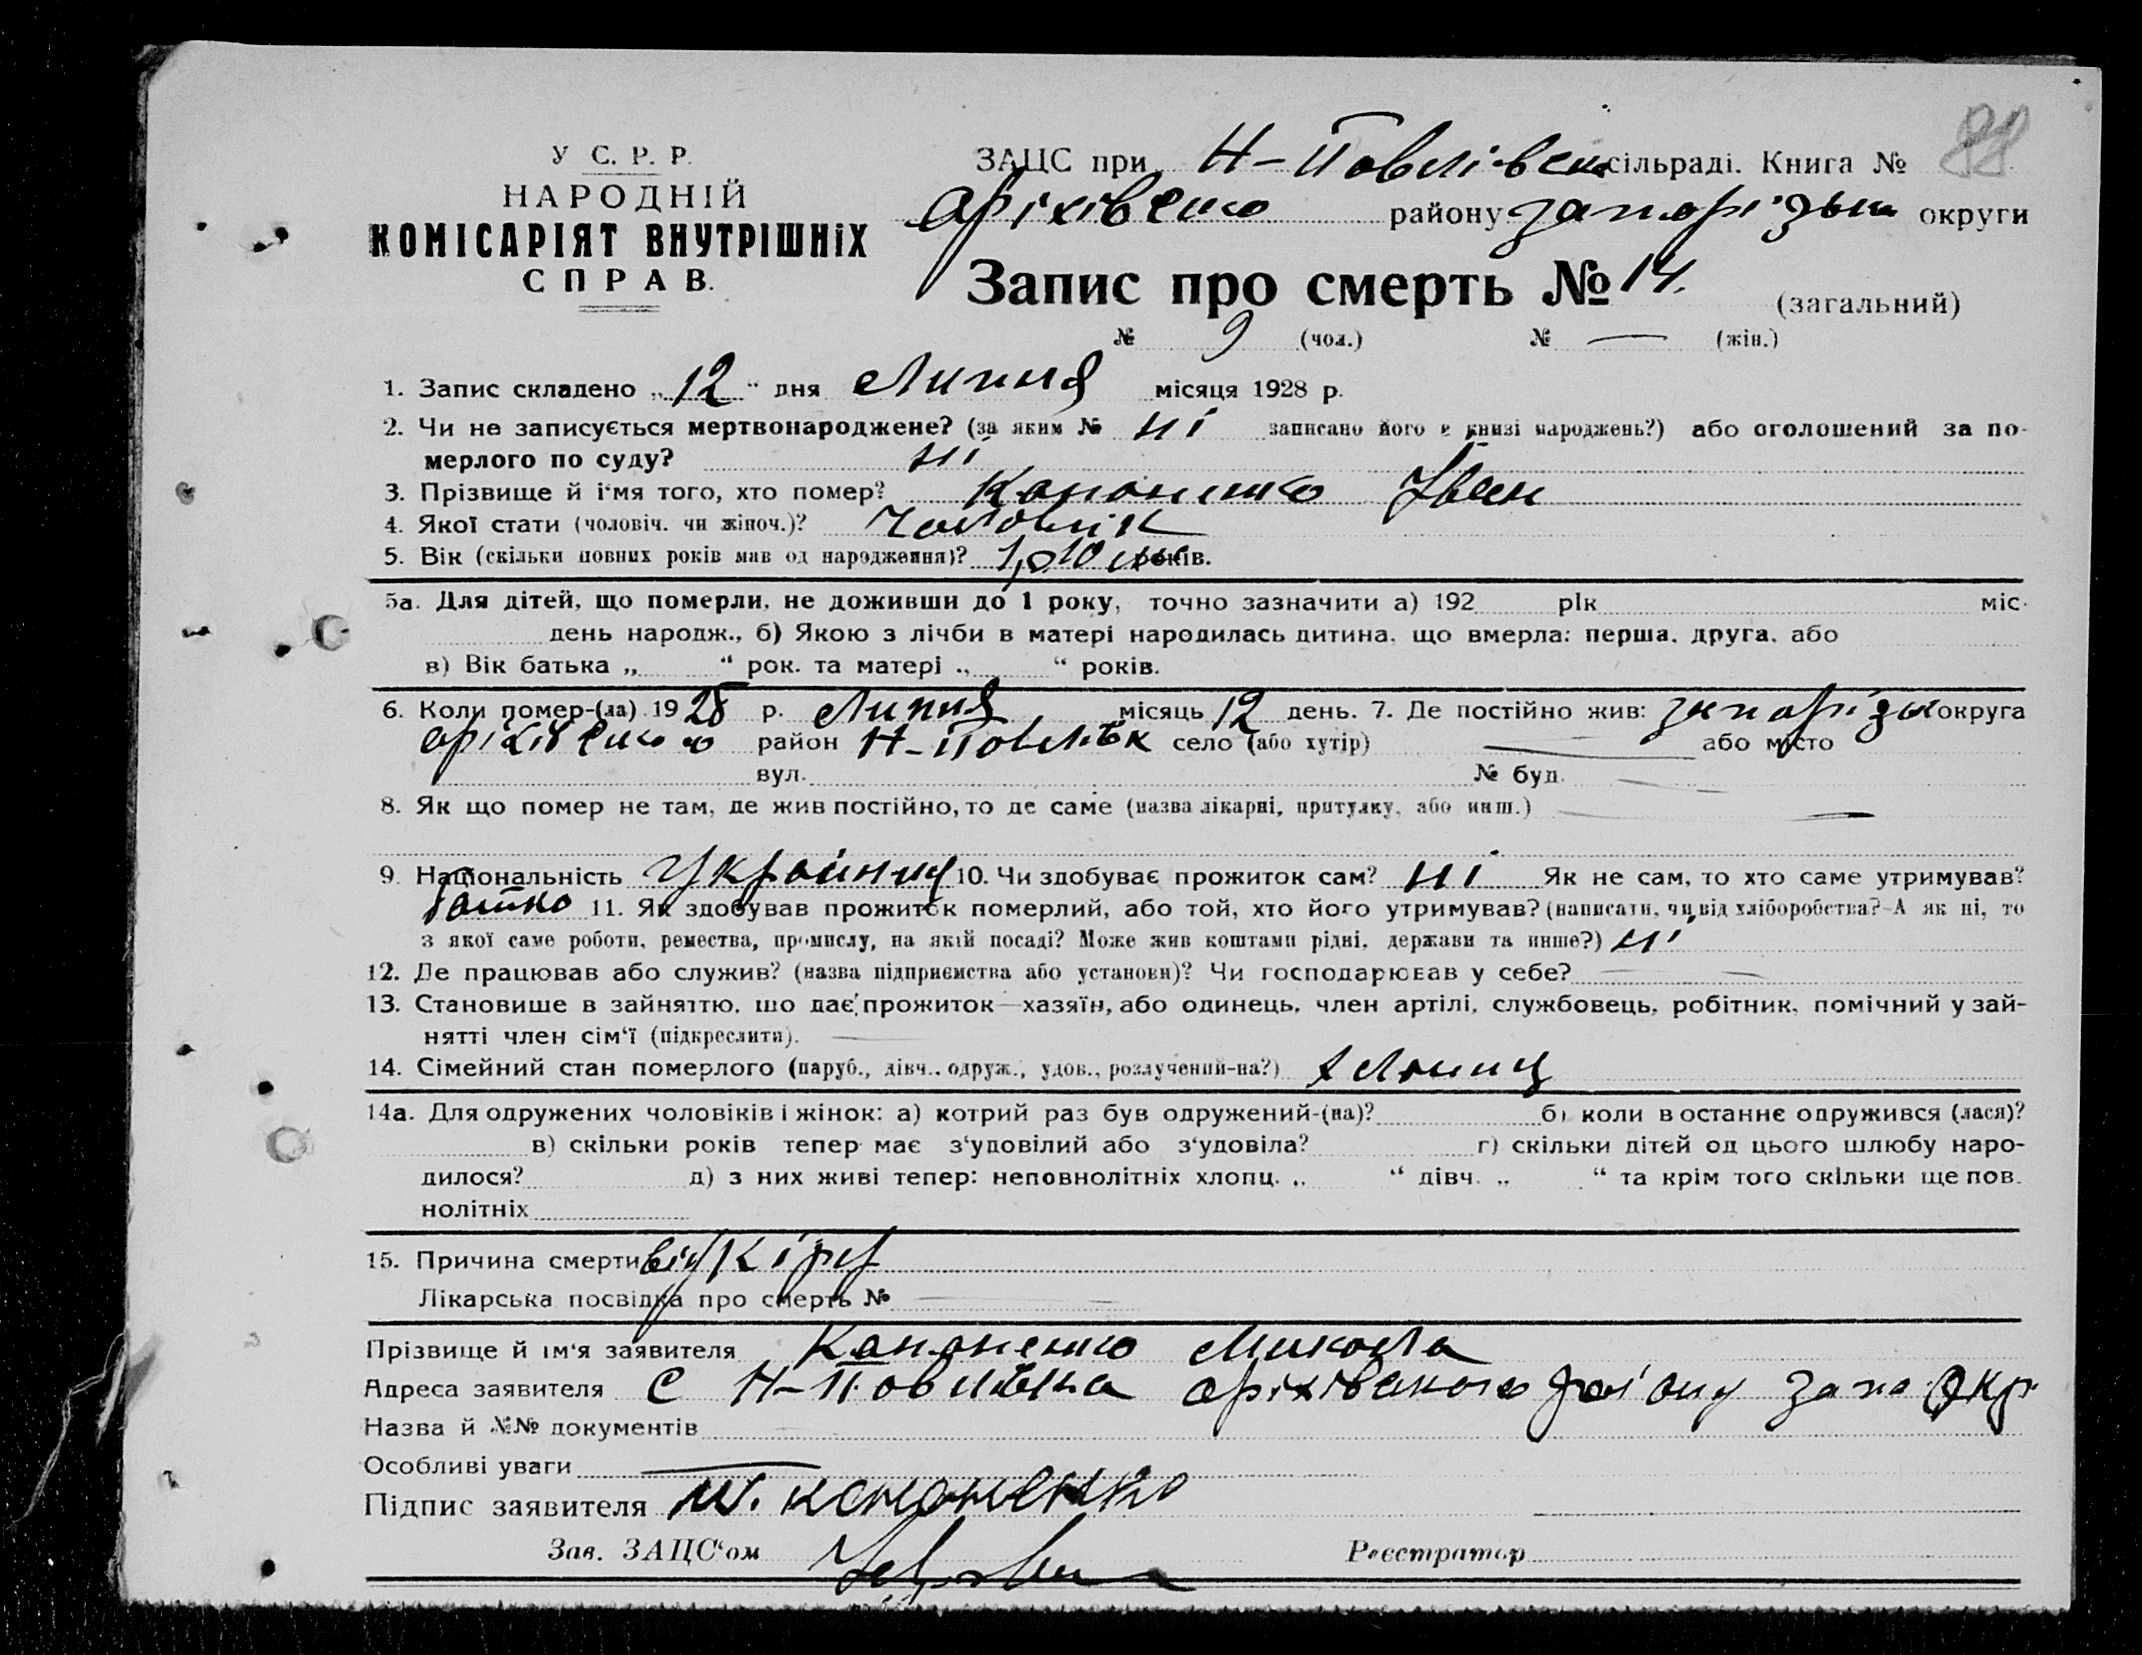 88
У С. Р. Р.
НАРОДНІЙ
КОМІСАРІЯТ ВНУТРІШНІХ
СПРАВ.
ЗАЦС при Н-Повлівск сільраді. Книга №
Оріхівсько району Запорізьк округи
Запис про смерть № 14. (загальний)
№ 9 (чол.) № — (жін.)
1. Запис складено „12“ дня Липня місяця 1928 р.
2. Чи не записується мертвонароджене? (за яким № ні записано його в книзі народжень?) або оголошений за по-
мерлого по суду? ні
3. Прізвище й ім'я того, хто помер? Кононенко Іван
4. Якої стати (чоловіч. чи жіноч.)? Чоловік
5. Вік (скільки повних років мав од народження)? років.
5а. Для дітей, що померли, не доживши до 1 року, точно зазначити а) 192 рік міс.
день народж., б) Якою з лічби в матері народилась дитина, що вмерла: перша, друга, або
в) Вік батька „ “ рок. та матері „ “ років.
6. Коли помер-(ла) 1928 р. Липня місяць 12 день. 7. Де постійно жив: Запорізьк округа
Оріхівсько район Н-Повлівк село (або хутір) — або місто
вул. № буд.
8. Як що помер не там, де жив постійно, то де саме (назва лікарні, притулку, або инш.) —
9. Національність Українец 10. Чи здобуває прожиток сам? ні Як не сам, то хто саме утримував?
батько 11. Як здобував прожиток померлий, або той, хто його утримував? (написати, чи від хліборобства? А як ні, то
з якої саме роботи, ремества, промислу, на якій посаді? Може жив коштами рідні, держави та инше?) ні
12. Де працював або служив? (назва підприємства або установи)? Чи господарював у себе? —
13. Становище в зайняттю, що дає прожиток—хазяїн, або одинець, член артілі, службовець, робітник, помічний у зай-
нятті член сім'ї (підкреслити). —
14. Сімейний стан померлого (паруб., дівч., одруж., удов., розлучений-на?)
14а. Для одружених чоловіків і жінок: а) котрий раз був одружений-(на)? б) коли в останнє одружився (лася)?
в) скільки років тепер має з'удовілий або з'удовіла? г) скільки дітей од цього шлюбу наро-
дилося? д) з них живі тепер: неповнолітніх хлопц. „ “ дівч. „ “ та крім того скільки ще пов.
нолітніх
15. Причина смерти від Кіру
Лікарська посвідка про смерть № —
Прізвище й ім'я заявителя Кононенко Микола
Адреса заявителя С Н-Повлівка Оріхівського району Запо Окр
Назва й №№ документів
Особливі уваги —
Підпис заявителя М. Кононенко
Зав. ЗАЦС'ом
Реєстратор